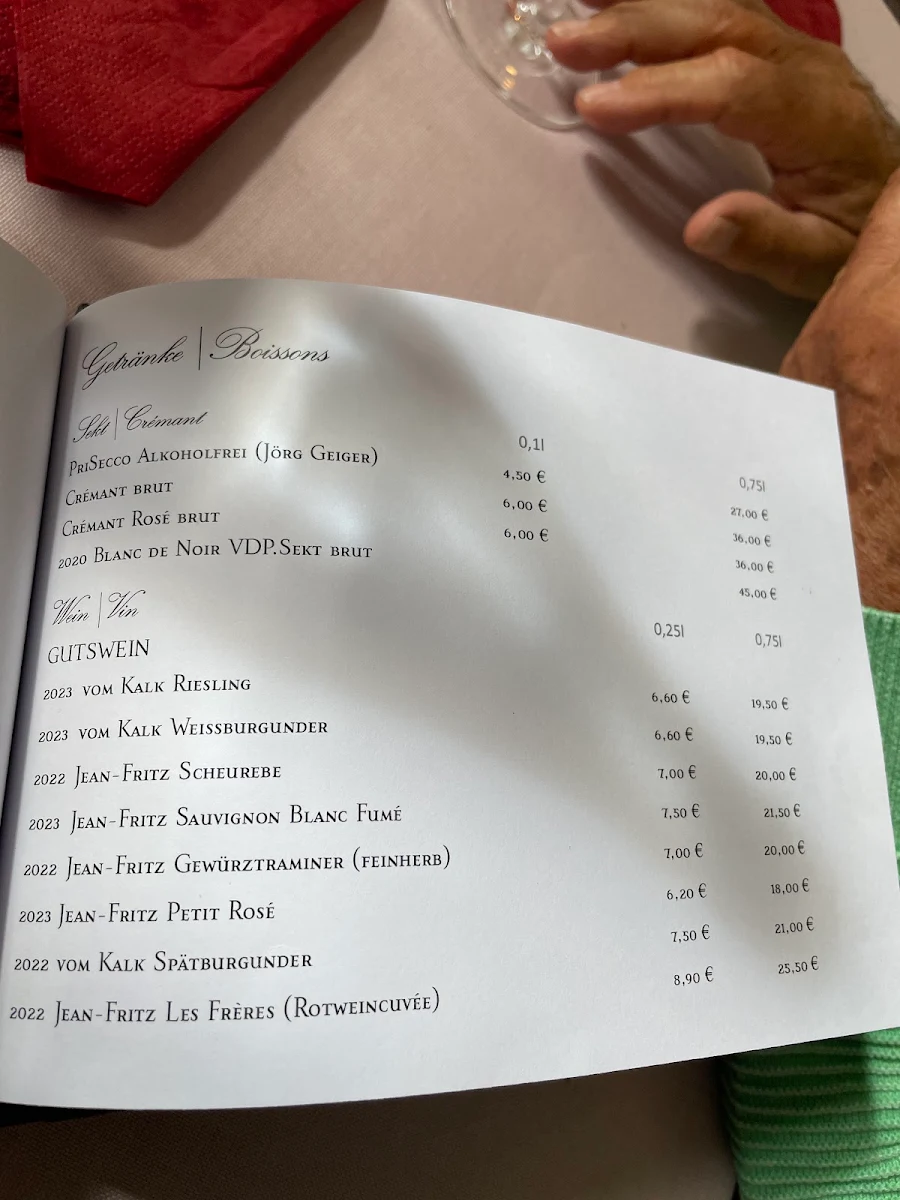 Getränke | Boissons
Sekt | Crémant 0,1l 0,75l
PriSecco Alkoholfrei (Jörg Geiger) 4,50 € 27,00 €
Crémant brut 6,00 € 36,00 €
Crémant Rosé brut 6,00 € 36,00 €
2020 Blanc de Noir VDP.Sekt brut 45,00 €
Wein | Vin
GUTSWEIN 0,25l 0,75l
2023 vom Kalk Riesling 6,60 € 19,50 €
2023 vom Kalk Weissburgunder 6,60 € 19,50 €
2022 Jean-Fritz Scheurebe 7,00 € 20,00 €
2023 Jean-Fritz Sauvignon Blanc Fumé 7,50 € 21,50 €
2022 Jean-Fritz Gewürztraminer (feinherb) 7,00 € 20,00 €
2023 Jean-Fritz Petit Rosé 6,20 € 18,00 €
2022 vom Kalk Spätburgunder 7,50 € 21,00 €
2022 Jean-Fritz Les Frères (Rotweincuvée) 8,90 € 25,50 €